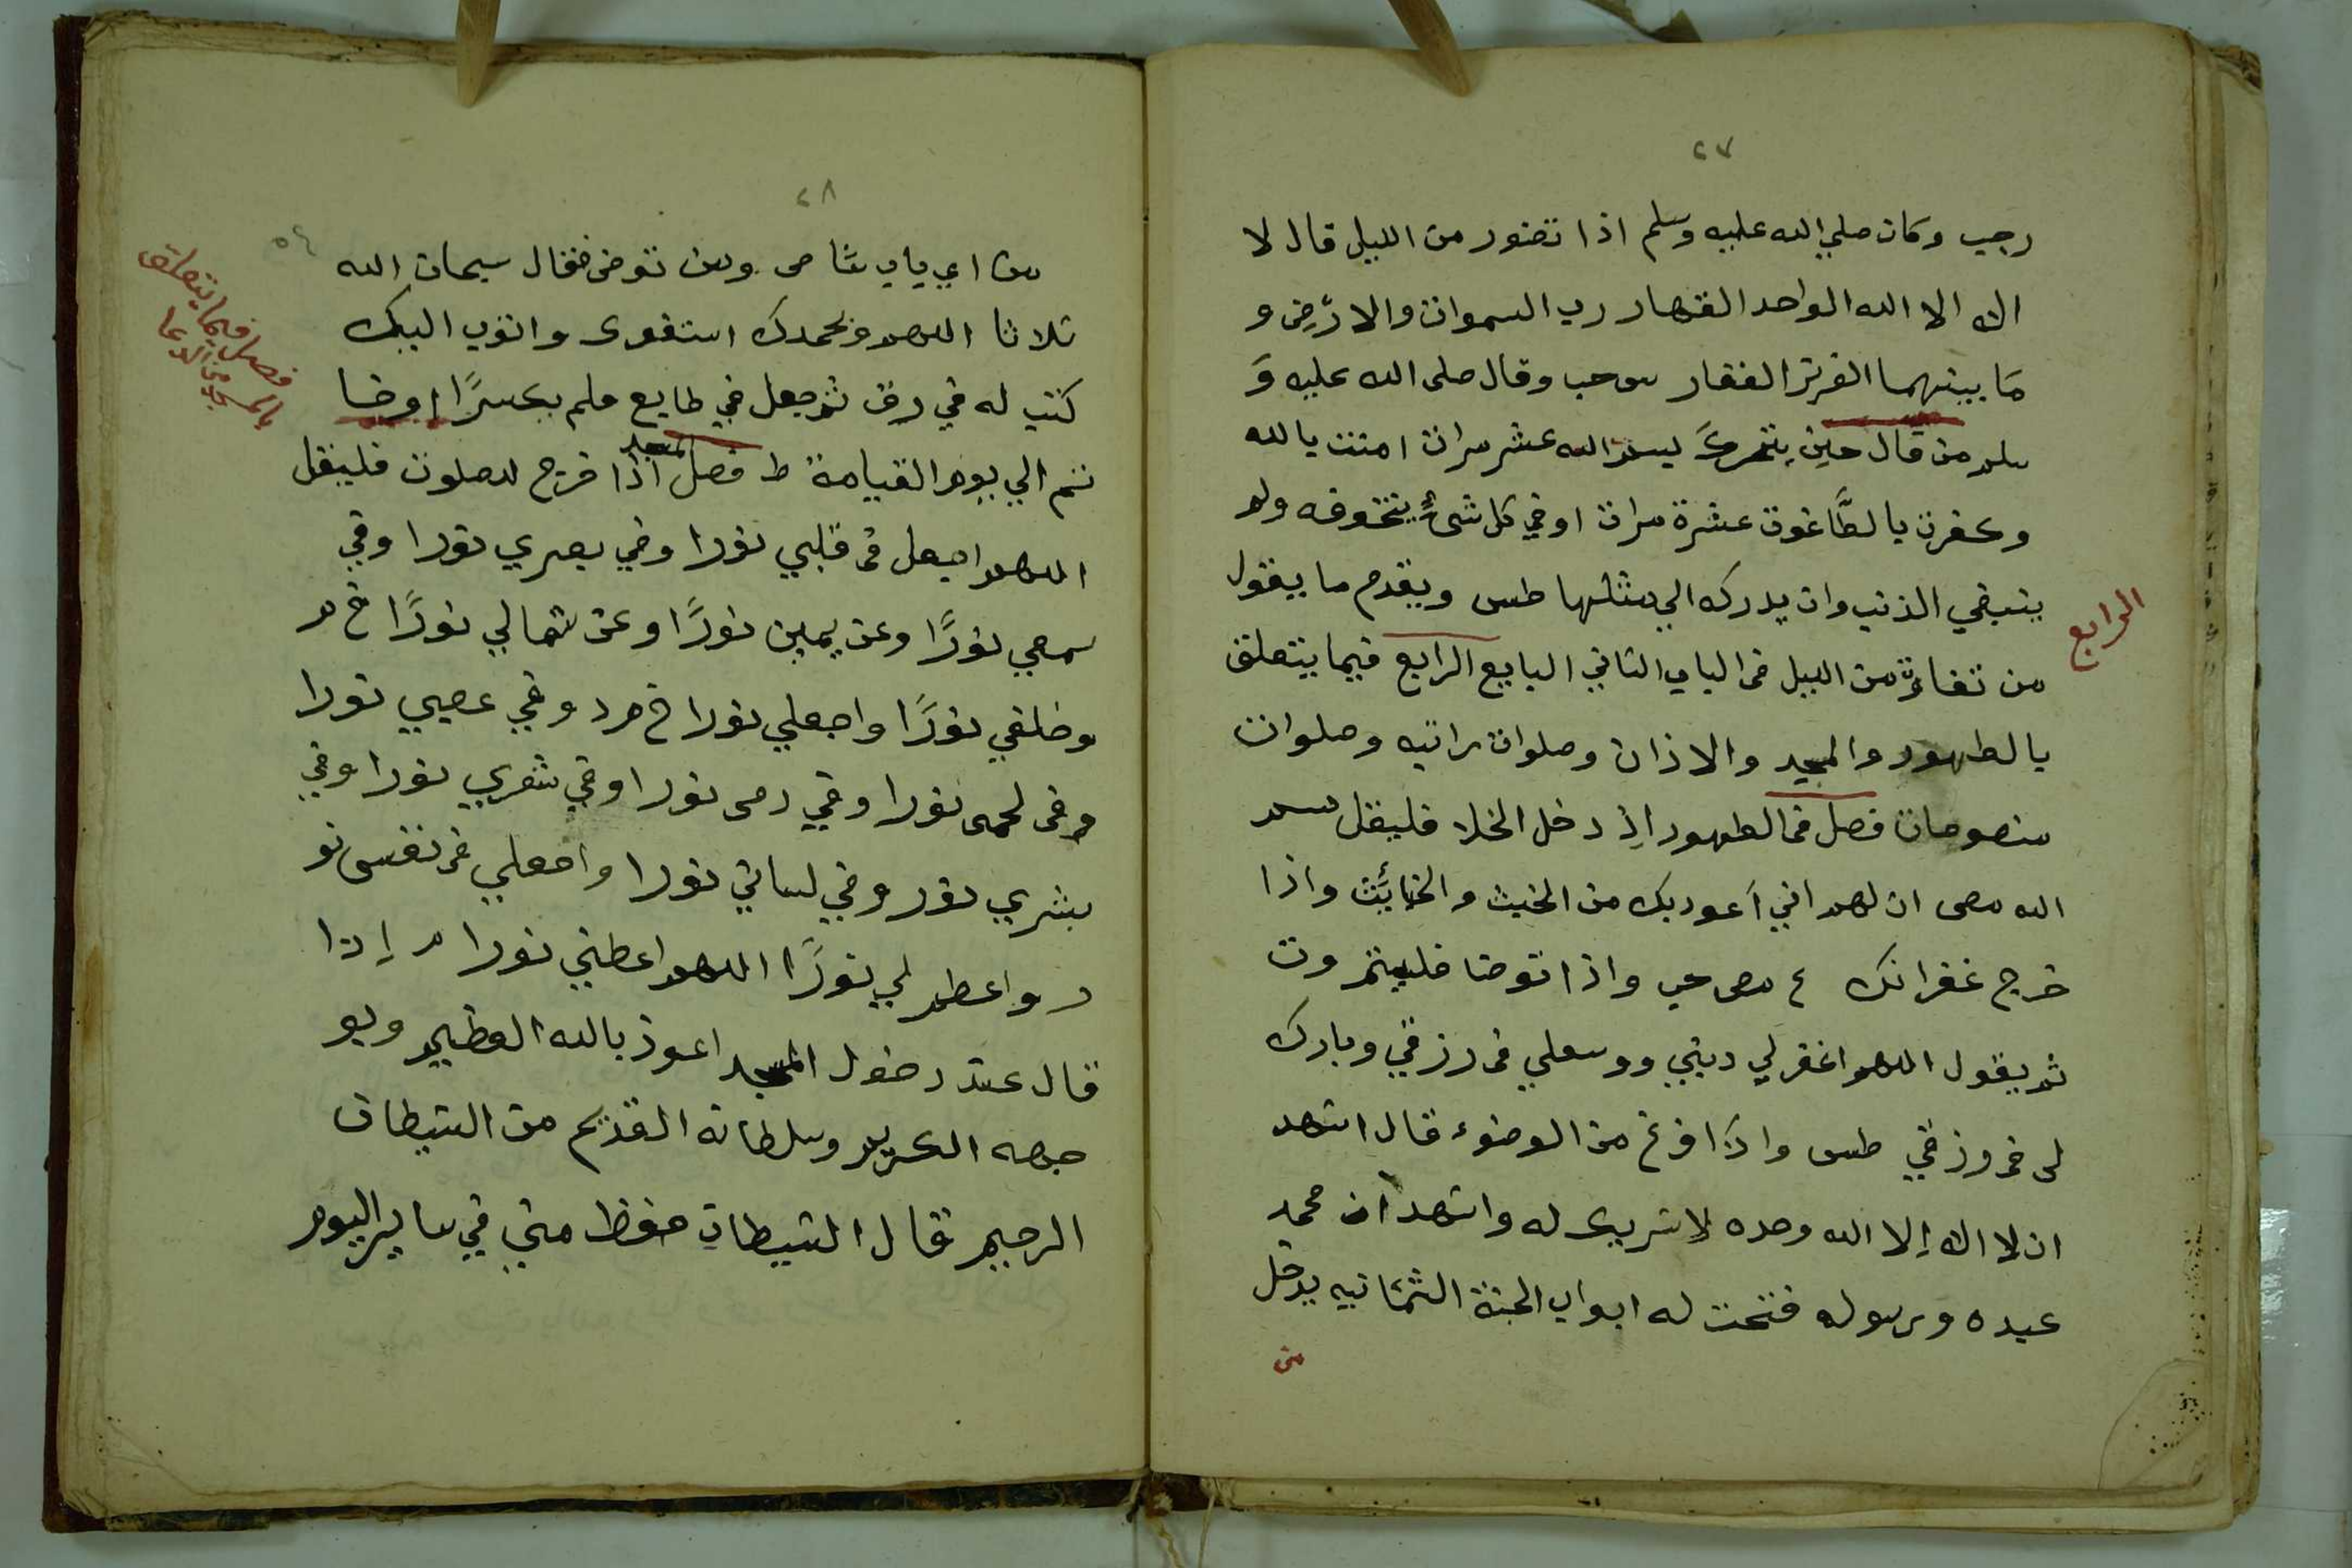 ٢٧
رجب وكان صلي الله عليه وسلم اذا تضور من الليل قال لا
اله الا الله الواحد القهار رب السموات والارض و
مَا بينهما العزيز الغفار س حب وقال صلى الله عليه وَ
سلم من قال حين يتحرك بسم الله عشر مرات امنت بالله
وكفرت بالطَّاغوت عشرة مرات اوقي كل شئ يتخوفه ولم
ينبغي الذنب وان يدركه الي مثلها طس ويقدم ما يقول
الرابع
من تعار من الليل في الباب الثاني الباب الرابع فيما يتعلق
بالطهور والمسجد والاذان وصلوات راتبه وصلوات
منصوصات فصل في الطهور اذ دخل الخلا فليقل بسم
الله مص اللهم اني اَعوذ بك من الخبث والخبائث واذا
خرج غفرانك ع مص حب واذا توضا فليسم وت
ثم يقول اللهم اغفر لي ذنبي ووسعلي في رزقي وبارك
لى في رزقي طس واذا فرغ من الوضوء قال اشهد
ان لا اله إلا الله وحده لا شريك له واشهد ان محمد
عبده ورسوله فتحت له ابواب الجنة الثمانيه يدخل
من
٢٨
٥٤
من اي باب شا مى ومن توضى فقال سبحان الله
ثلاثا اللهم وبحمدك استغفرك واتوب اليك
فصل فيما يتعلق
بالمسجد من الدعا
كتب له في رق ثم جعل في طابع فلم يكسرًا
الي يوم القيامة ط فصل المسجد اذا خرج للصلوت فليقل
اللهم اجعل في قلبي نورا وفي بصري نورا وفي
سمعي نورًا وعن يمين نورًا وعن شمالي نورًا خ م
وخلفي نورًا واجعلي نورا خ م د وفي عصبي نورا
وفى لحمى نورا وفي دمى نورا وفي شعري نورا وفي
بشري نور وفي لساني نورا واجعلي في نفسى نو
ر واعظم لي نورًا اللهم اعطني نورا م إذا
قال عند دخول المسجد اعوذ بالله العظيم وبو
جهه الكريم وسلطانه القديم من الشيطان
الرجيم قال الشيطان حفظ مني في ساير اليوم